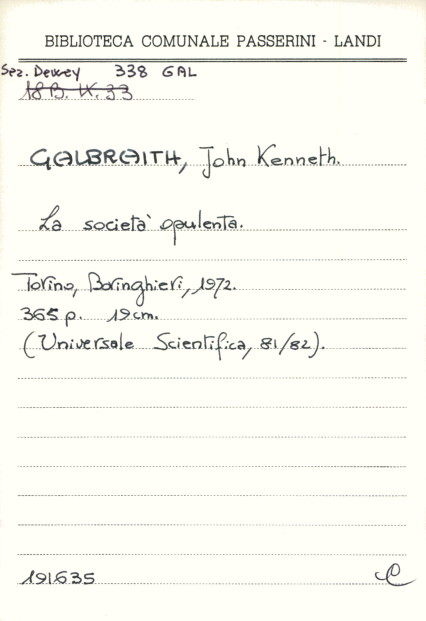 BIBLIOTECA COMUNALE PASSERINI - LANDI
Sez. Dewey 338 GAL
18 B. IX. 33
GALBRAITH, John Kenneth.
La società opulenta.
Torino, Boringhieri, 1972.
365 p. 19 cm.
(Universale Scientifica, 81/82).
191635